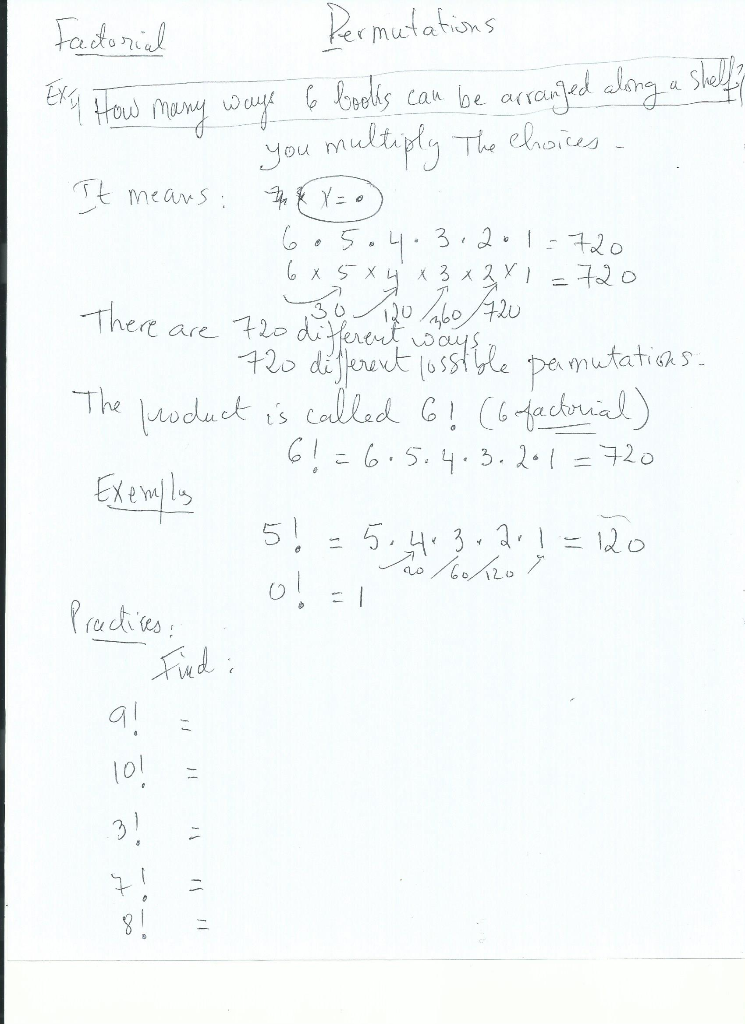 Factorial Permutations
Ex 1/ How many ways 6 books can be arranged along a shelf?
you multiply the choices -
It means: × = •
6 • 5 • 4 • 3 • 2 • 1 = 720
6 × 5 × 4 × 3 × 2 × 1 = 720
30 120 360 720
There are 720 different ways
720 different possible permutations.
The product is called 6! (6 factorial)
6! = 6 • 5 • 4 • 3 • 2 • 1 = 720
Exemples
5! = 5 • 4 • 3 • 2 • 1 = 120
20 60 120
0! = 1
Practices:
Find:
9! =
10! =
3! =
7! =
8! =